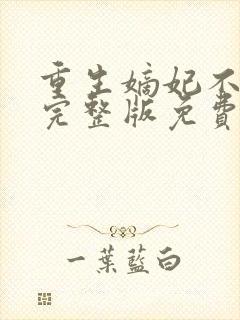 重生嫡妃不
完整版免費
一葉藍白